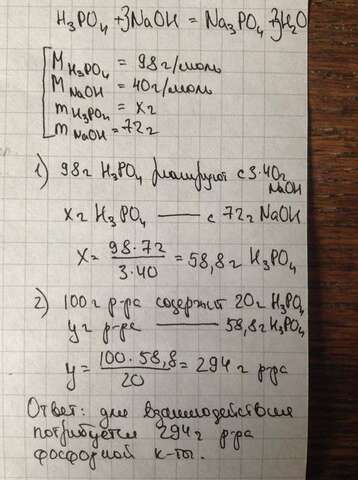 H₃PO₄ + 3NaOH = Na₃PO₄ + 3H₂O
M H₃PO₄ = 98 г/моль
M NaOH = 40 г/моль
m H₃PO₄ = x г
m NaOH = 72 г
1) 98 г H₃PO₄ реагируют с 3·40 г NaOH
x г H₃PO₄ —— с 72 г NaOH
x = 98·72 / 3·40 = 58,8 г H₃PO₄
2) 100 г р-ра содержит 20 г H₃PO₄
y г р-ра —— 58,8 г H₃PO₄
y = 100·58,8 / 20 = 294 г р-ра
Ответ: для взаимодействия
потребуется 294 г р-ра
фосфорной к-ты.